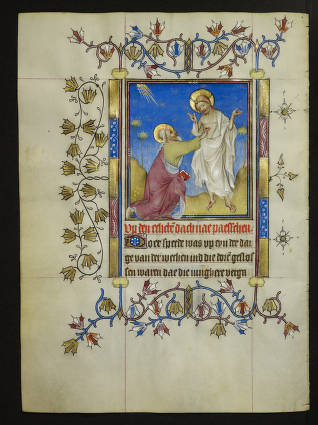 Up den echtẽ dach nae paesschen.
Doe spede was up eyn der da
ge van der weken ind die doiʳ geslos
sen waren dae die iungher vergn